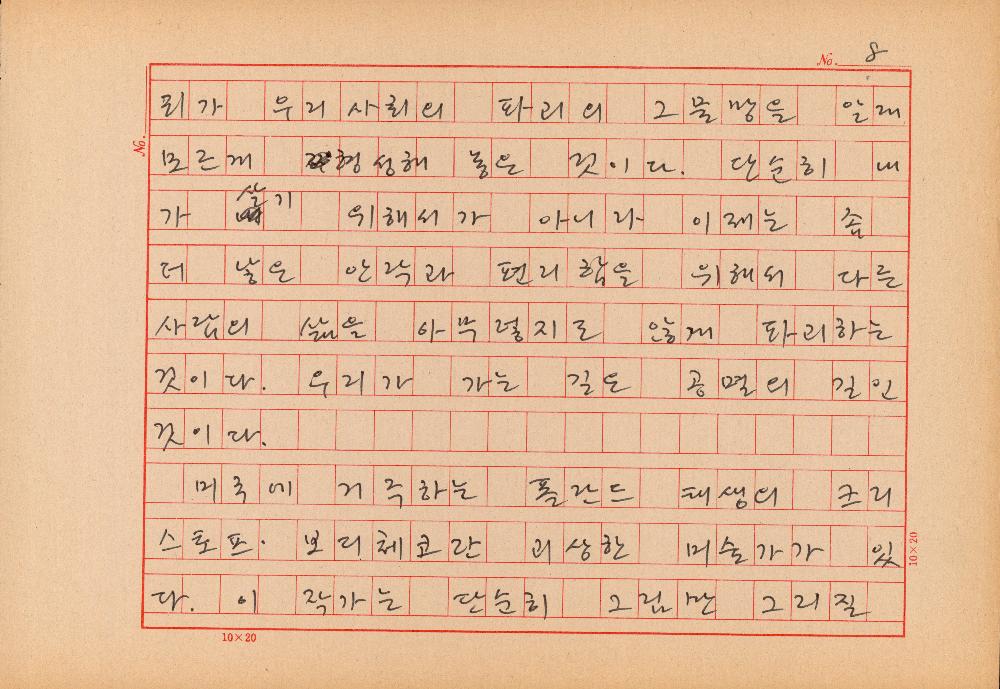 No. 8
리가 우리 사회의 파괴의 그물망을 알게
모르게 형성해 놓은 것이다. 단순히 내
가 살기 위해서가 아니라 이제는 좀
더 낳은 안락과 편리함을 위해서 다른
사람의 삶을 아무렇지도 않게 파괴하는
것이다. 우리가 가는 길은 공멸의 길인
것이다.
미국에 거주하는 폴란드 태생의 크리
스토프. 보디체코란 괴상한 미술가가 있
다. 이 작가는 단순히 그림만 그리질
No.
10×20
10×20